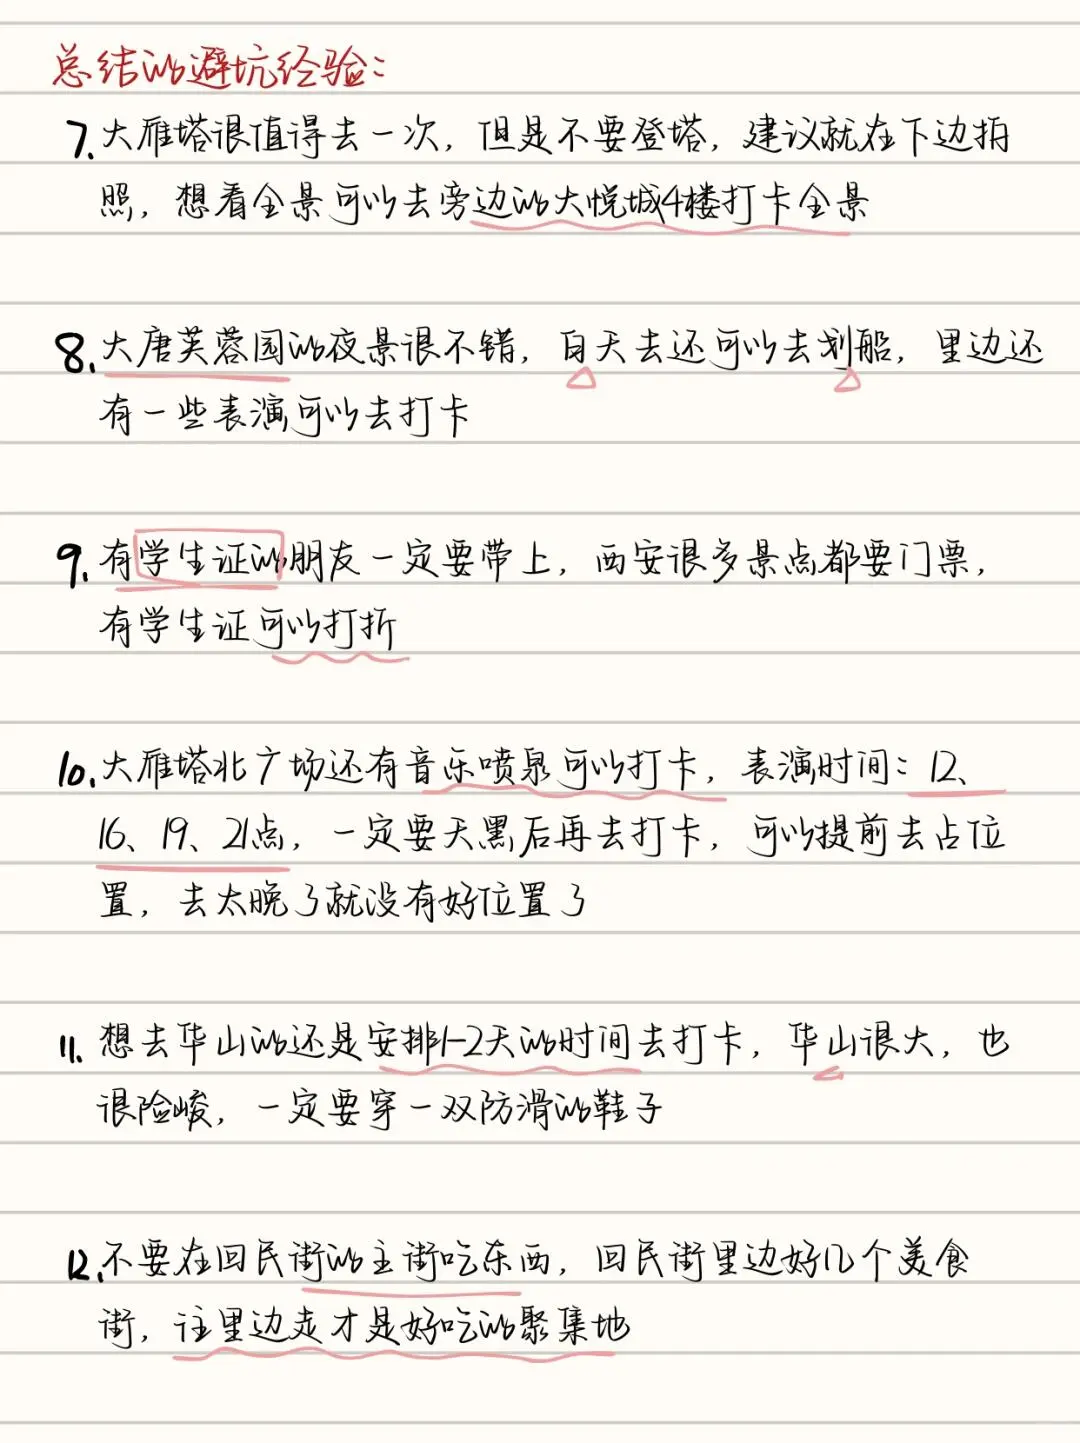 总结的避坑经验：
7.大雁塔很值得去一次，但是不要登塔，建议就在下边拍
照，想看全景可以去旁边的大悦城4楼打卡全景
8.大唐芙蓉园的夜景很不错，白天去还可以去划船，里边还
有一些表演可以去打卡
9.有学生证的朋友一定要带上，西安很多景点都要门票，
有学生证可以打折
10.大雁塔北广场还有音乐喷泉可以打卡，表演时间：12、
16、19、21点，一定要天黑后再去打卡，可以提前去占位
置，去太晚了就没有好位置了
11.想去华山的还是安排1-2天的时间去打卡，华山很大，也
很险峻，一定要穿一双防滑的鞋子
12.不要在回民街的主街吃东西，回民街里边好几个美食
街，往里边走才是好吃的聚集地